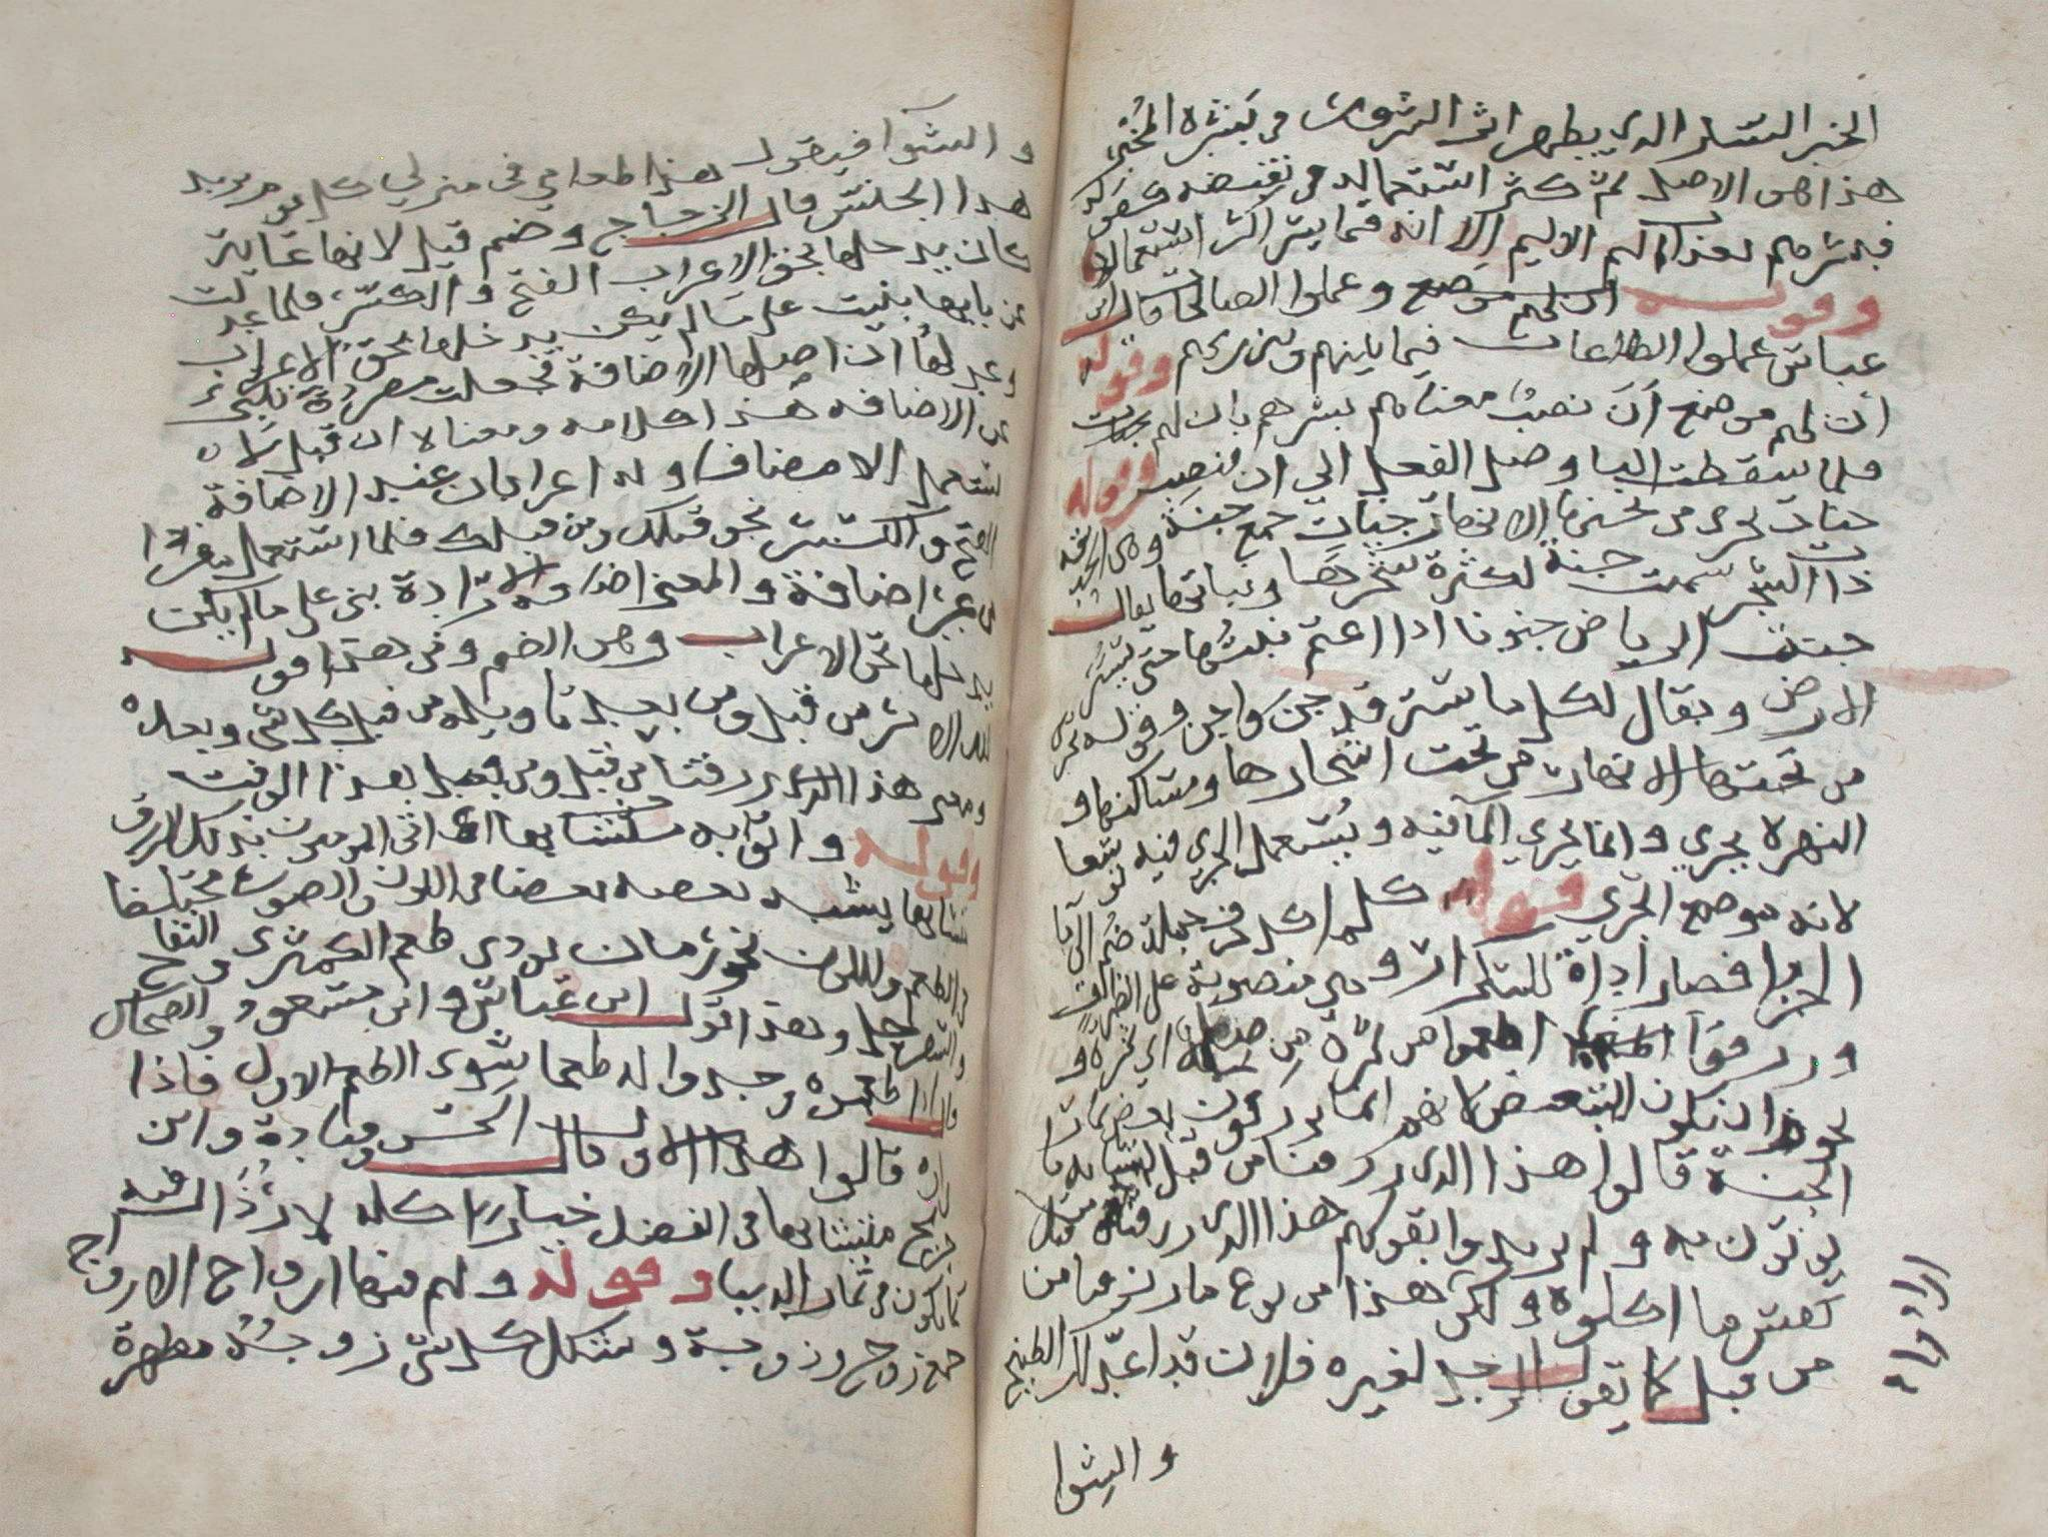 الخبر السار الذي يظهر اثر السرور في بشرة المخبر
هذا هو الاصل ثم كثر استعماله في نقيضه كقوله
فبشرهم بعذاب اليم الا انه فيما يسر اكثر استعمالا
وقوله وعملوا الصالحات قال ابن
عباس عملوا الطاعات فيما بينهم وبين ربهم وقوله
ان لهم موضع ان نصب معناه بشرهم بان لهم جنات
فلما سقطت البا وصل الفعل الى ان فنصب وقوله
جنات تجري من تحتها الانهار جنات جمع جنة وهي الحديقة
ذات الشجر سميت جنة لكثرة شجرها ونباتها يقال
جنت الرياض جنونا اذا اعتم نبتها حتى تستر
الارض ويقال لكل ما ستر قد جن واجن وقوله تجري
من تحتها الانهار من تحت اشجارها ومساكنها و
النهر لا يجري وانما يجري الما فيه ويستعمل الجري فيه توسعا
لانه موضع الجري قوله كلما كل حرف جملة ضم الى ما
الجزا فصار اداة للتكرار وهي منصوبة على الظرف
ورزقوا اطعموا من ثمرة من صلة اي ثمرة و
يجوز ان يكون للتبعيض لانهم انما يرزقون بعض ثمار
الجنة قالوا هذا الذي رزقنا من قبل لتشابه ما
يؤتون به ولم يريدوا بقولهم هذا الذي رزقنا من قبل
نفس ما اكلوه ولكن هذا من نوع ما رزقنا من
من قبل كما يقول الرجل لغيره فلان قد اعد لك الطبيخ
والشوا
والشوا فيقول هذا طعامي في منزلي كل يوم يريد
هذا الجنس قال الزجاج وضم قبل لانها غاية
كان يدخلها بحق الاعراب الفتح والكسر فلما عدلت
عن بابها بنيت على ما لم يكن يدخلها بحق الاعراب
وعدلها ان اصلها الاضافة فجعلت مفردة تنبئ
عن الاضافة هذا كلامه ومعناه ان قبل لا
يستعمل الا مضافا وله اعرابان عند الاضافة
الفتح والكسر نحو قبلك ومن قبلك فلما استعمل مفردا
من غير اضافة والمعنى اضافة بني على ما لم يكن
يدخله بحق الاعراب وهو الضم ومن هذا قوله
لله الامر من قبل ومن بعد تاويله من قبل كل شي وبعده
ومعنى هذا الذي رزقنا من قبل ومن قبل بعد هذا الوقت
وقوله واتوا به متشابها اي اتى المومنون بذلك الرزق
متشابها يشبه بعضه بعضا في اللون والصورة مختلفا
في الطعم واللون نحو رمان يودي طعم الكمثرى والتفاح
والسفرجل وهذا قول ابن عباس وابن مسعود والضحاك
قال اذا طعموه وجدوا له طعما سوى الطعم الاول فاذا
راوه قالوا هذا الاول وقال الحسن وقتادة وابن
جريج متشابها في الفضل خيار كله لا رذل فيه
كما يكون في ثمار الدنيا وقوله ولهم فيها ازواج الازواج
جمع زوج وزوجة وشكل كل شي زوجه مطهرة